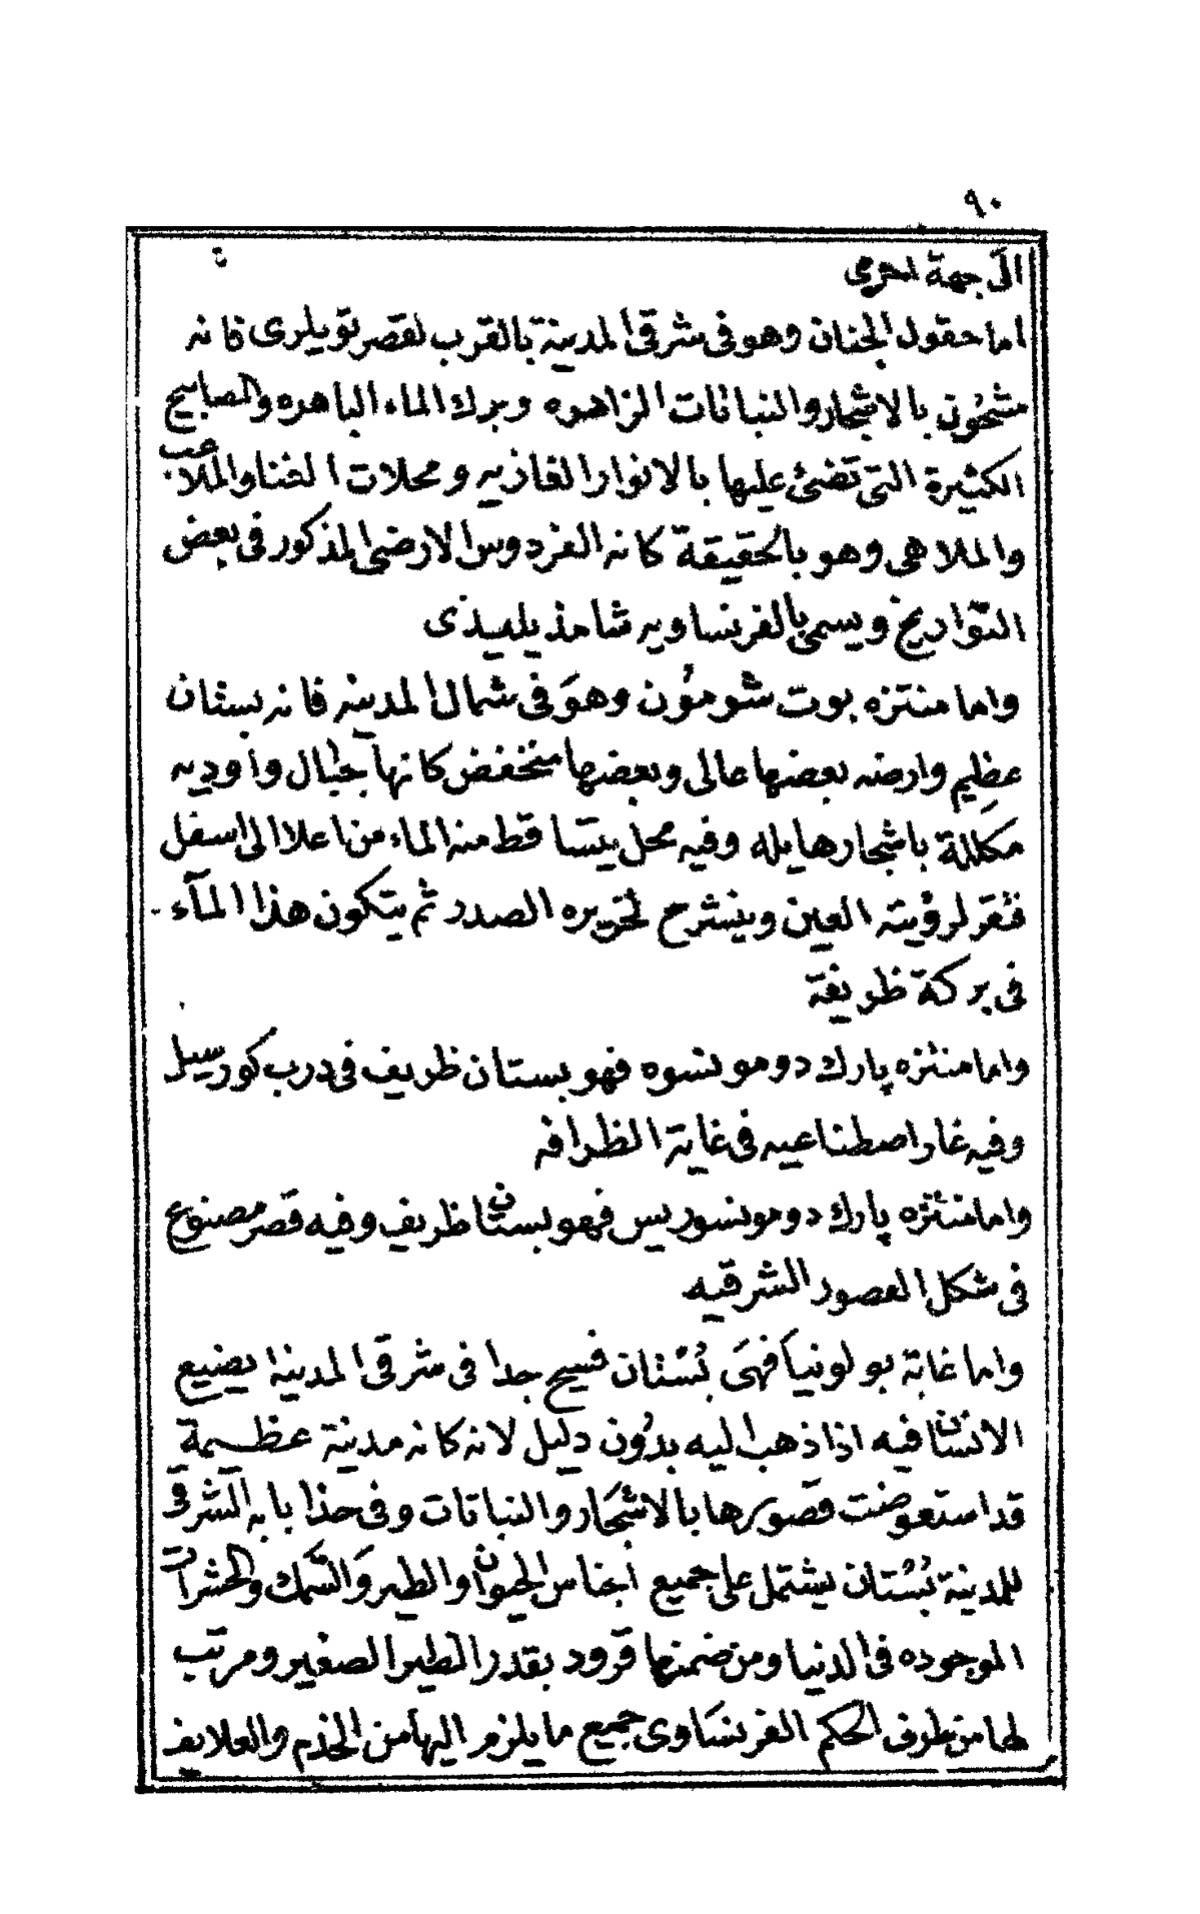 ٩٠
الى جهة اخرى
اما حقول الجنان وهو فى شرقى المدينة بالقرب لقصر تويلرى فانه
مشحون بالاشجار والنباتات الزاهره وبرك الماء الباهره والمصابيح
الكثيرة التى تضئ عليها بالانوار الغازيه ومحلات الغنا والملاعب
والملاهى وهو بالحقيقة كانه الفردوس الارضى المذكور فى بعض
التواريخ ويسمى بالفرنساويه شامذيليذى
واما منتزه بوت شومون وهو فى شمال المدينه فانه بستان
عظيم وارضه بعضها عالى وبعضها منخفض كانها جبال واوديه
مكللة باشجار هايله وفيه محل يتساقط منه الماء من اعلا الى اسفل
فتقر لرؤيته العين وينشرح لخريره الصدر ثم يتكون هذا المآء
فى بركة ظريفة
واما منتزه پارك دو مونسوه فهو بستان ظريف فى درب كورسيل
وفيه غار اصطناعيه فى غاية الظرافه
واما منتزه پارك دو مونسوريس فهو بستان ظريف وفيه قصر مصنوع
فى شكل القصور الشرقيه
واما غابة بولونيا فهى بستان فسيح جدا فى شرقى المدينة يضيع
الانسان فيه اذا ذهب اليه بدون دليل لانه كانه مدينة عظيمة
قد استعوضت قصورها بالاشجار والنباتات وفى حذا بابه الشرقى
للمدينة بستان يشتمل على جميع اجناس الحيوان والطير والسمك والحشرات
الموجوده فى الدنيا ومن ضمنها قرود بقدر الطير الصغير ومرتب
لها من طرف الحكم الفرنساوى جميع ما يلزم اليها من الخدم والعلايف